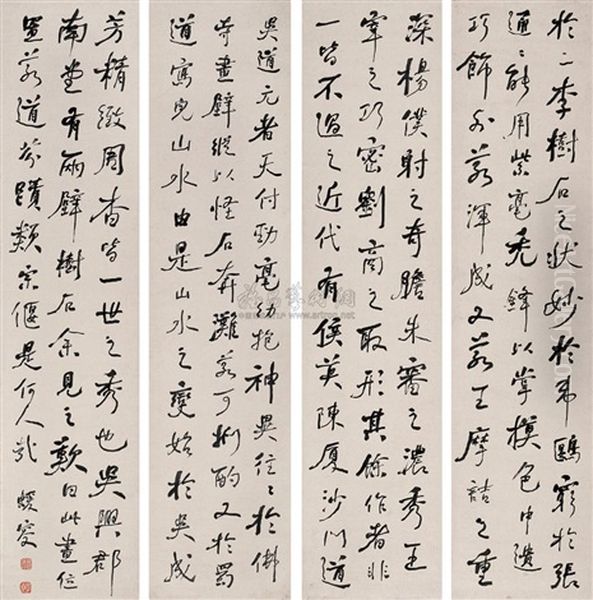 吳道元者天付勁毫幼抱神奧往〻於佛
寺畫壁縱以怪石奔灘若可捫酌又於蜀
道寫皃山水由是山水之變始於吳成
於二李樹石之狀妙於韋鶠窮於張
通〻能用紫毫禿鋒以掌模色中遺
巧飾外若渾成又若王摩詰之重
深楊僕射之奇贍朱審之濃秀王
宰之巧密劉商之取形其餘作者非
一皆不過之近代有侯莫陳廈沙門道
芬精緻周沓皆一世之秀也吳興郡
南堂有兩壁樹石余見之歎曰此畫位
置若道芬蹟類宗偃是何人哉 蝯叟